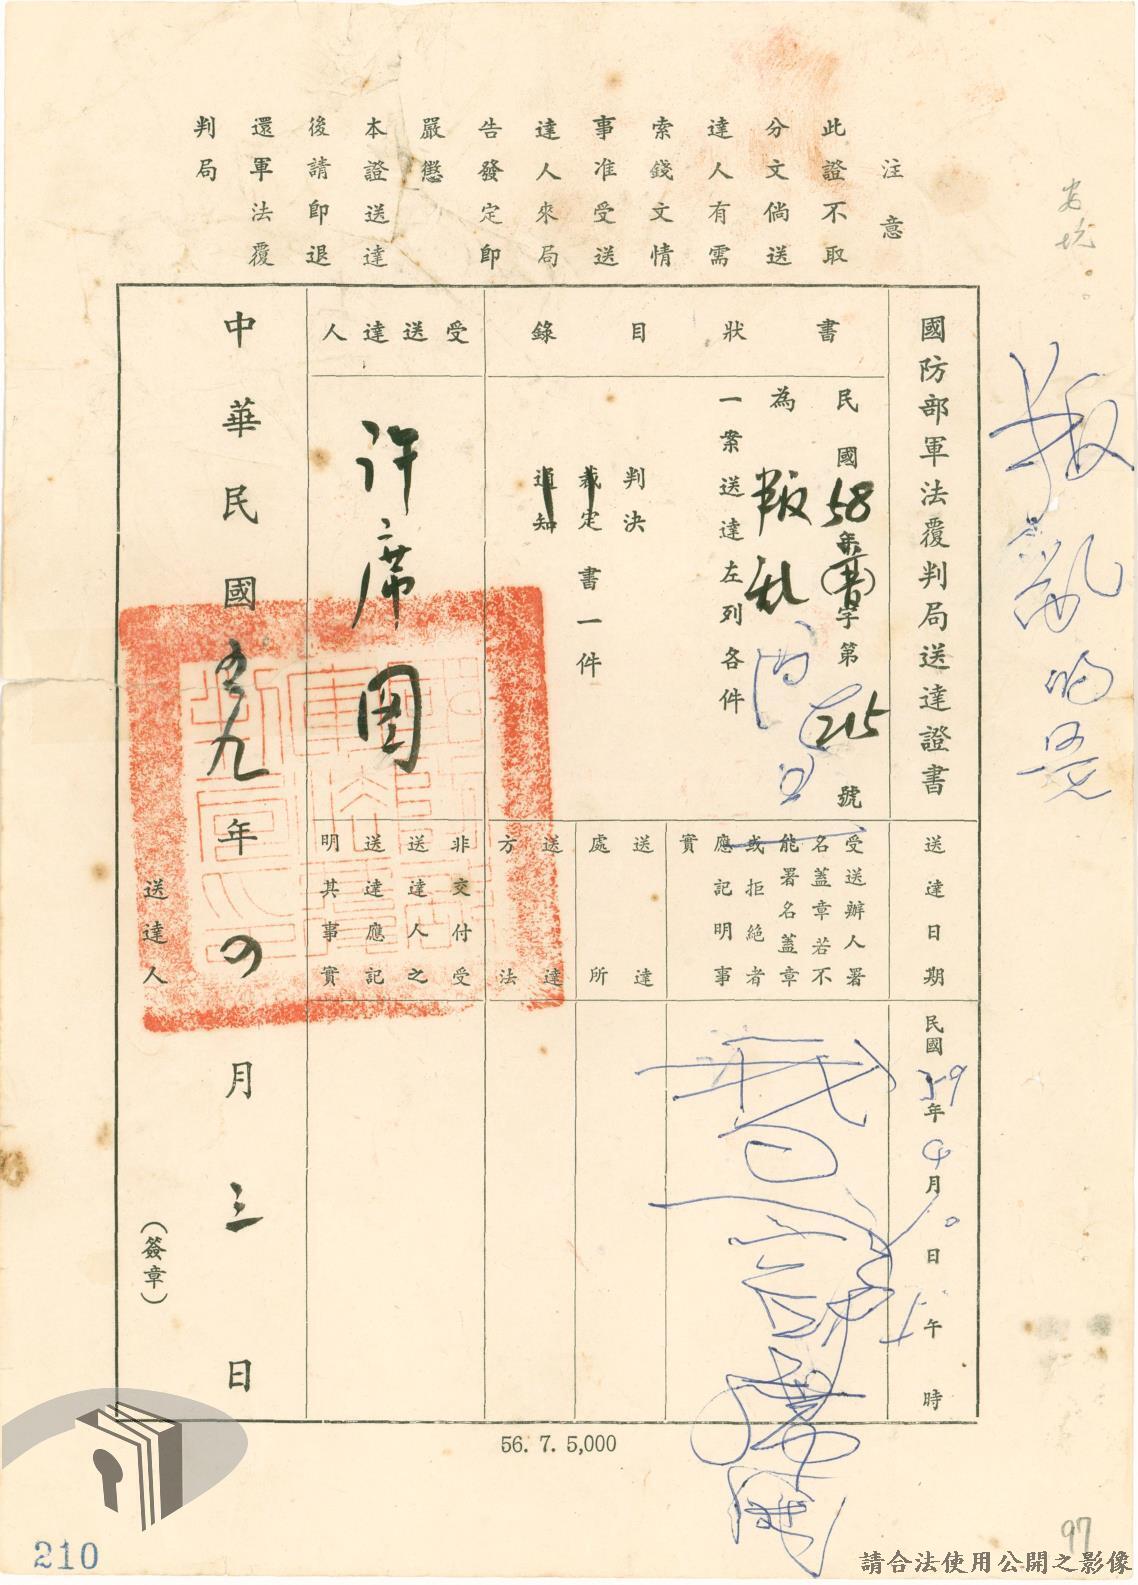 注意
此證不取
分文倘送
達人有需
索錢文情
事准受送
達人來局
告發定即
嚴懲
本證送達
後請即退
還軍法覆
判局
國防部軍法覆判局送達證書
書狀目錄
民國58年(普)字第215號
為叛乱
一案送達左列各件
判決
裁定書一件
通知
受送達人
許席图
中華民國五九年四月三日
送達人
(簽章)
送達日期
民國59年4月10日午時
受送辦人署
名蓋章若不
能署名蓋章
或拒絕者
應記明事
實
送達
處所
送達
方法
非交付受
送達人之
送達應記
明其事實
叛亂
安坑。
56. 7. 5,000
210
97
請合法使用公開之影像